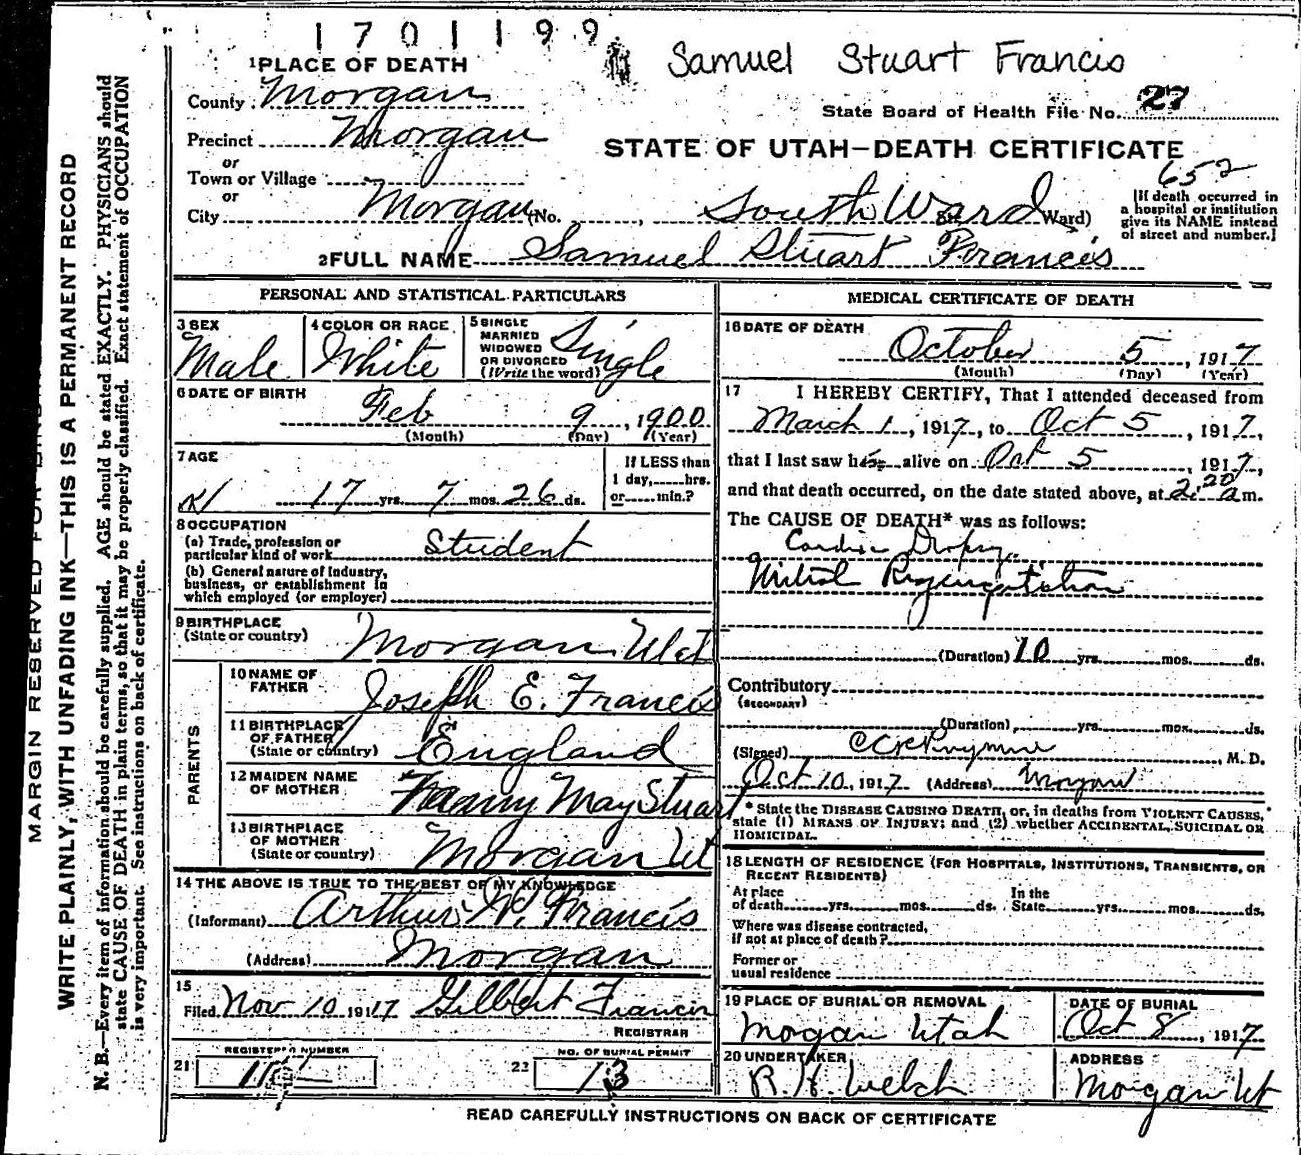 1701199
Samuel Stuart Francis
1 PLACE OF DEATH
County Morgan
State Board of Health File No. 27
Precinct Morgan
STATE OF UTAH—DEATH CERTIFICATE
or
652
Town or Village
or
City Morgan (No. , South Ward St. Ward)
[If death occurred in
a hospital or institution
give its NAME instead
of street and number.]
2 FULL NAME Samuel Stuart Francis
PERSONAL AND STATISTICAL PARTICULARS
3 SEX
Male
4 COLOR OR RACE
White
5 SINGLE
MARRIED
WIDOWED
OR DIVORCED
(Write the word)
Single
6 DATE OF BIRTH
Feb 9, 1900
(Month) (Day) (Year)
7 AGE
17 yrs. 7 mos. 26 ds.
If LESS than
1 day, hrs.
or min.?
8 OCCUPATION
(a) Trade, profession or
particular kind of work Student
(b) General nature of industry,
business, or establishment in
which employed (or employer)
9 BIRTHPLACE
(State or country)
Morgan Utah
PARENTS
10 NAME OF
FATHER
Joseph E. Francis
11 BIRTHPLACE
OF FATHER
(State or country)
England
12 MAIDEN NAME
OF MOTHER
Fanny May Stuart
13 BIRTHPLACE
OF MOTHER
(State or country)
Morgan Ut
14 THE ABOVE IS TRUE TO THE BEST OF MY KNOWLEDGE
(Informant) Arthur W. Francis
(Address) Morgan
15
Filed Nov 10 1917 Gilbert Francis
REGISTRAR
REGISTERED NUMBER
21
NO. OF BURIAL PERMIT
22 13
MEDICAL CERTIFICATE OF DEATH
16 DATE OF DEATH
October 5, 1917
(Month) (Day) (Year)
17 I HEREBY CERTIFY, That I attended deceased from
March 1, 1917, to Oct 5, 1917,
that I last saw him alive on Oct 5, 1917,
and that death occurred, on the date stated above, at 2:20 a m.
The CAUSE OF DEATH* was as follows:
Cardiac Dropsy.
Mitral Regurgitation
(Duration) 10 yrs. mos. ds.
Contributory
(SECONDARY)
(Duration) yrs. mos. ds.
(Signed) M. D.
Oct 10, 1917 (Address) Morgan
* State the DISEASE CAUSING DEATH, or, in deaths from VIOLENT CAUSES,
state (1) MEANS OF INJURY; and (2) whether ACCIDENTAL, SUICIDAL OR
HOMICIDAL.
18 LENGTH OF RESIDENCE (FOR HOSPITALS, INSTITUTIONS, TRANSIENTS, OR
RECENT RESIDENTS)
At place In the
of death yrs. mos. ds. State yrs. mos. ds.
Where was disease contracted,
if not at place of death?
Former or
usual residence
19 PLACE OF BURIAL OR REMOVAL
Mogan Utah
DATE OF BURIAL
Oct 8, 1917
20 UNDERTAKER
R. H. Welch
ADDRESS
Morgan Ut
READ CAREFULLY INSTRUCTIONS ON BACK OF CERTIFICATE
MARGIN RESERVED FOR
WRITE PLAINLY, WITH UNFADING INK—THIS IS A PERMANENT RECORD
N. B.—Every item of information should be carefully supplied. AGE should be stated EXACTLY. PHYSICIANS should
state CAUSE OF DEATH in plain terms, so that it may be properly classified. Exact statement of OCCUPATION
is very important. See instructions on back of certificate.